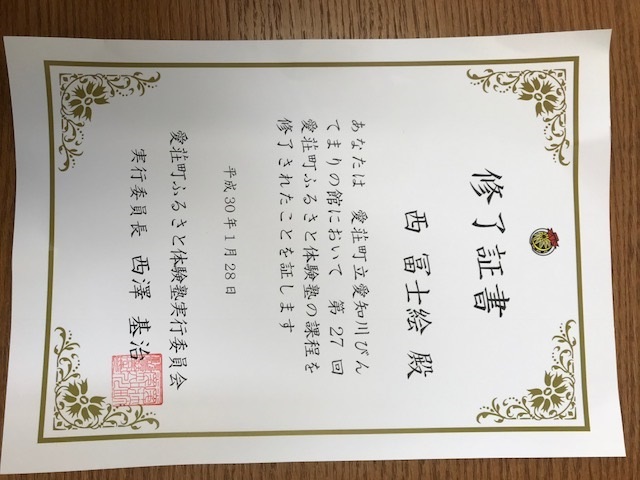 修了証書
西 冨士絵 殿
あなたは 愛荘町立愛知川びん
てまりの館において 第27回
愛荘町ふるさと体験塾の課程を
修了されたことを証します
平成30年1月28日
愛荘町ふるさと体験塾実行委員会
実行委員長 西澤 基治